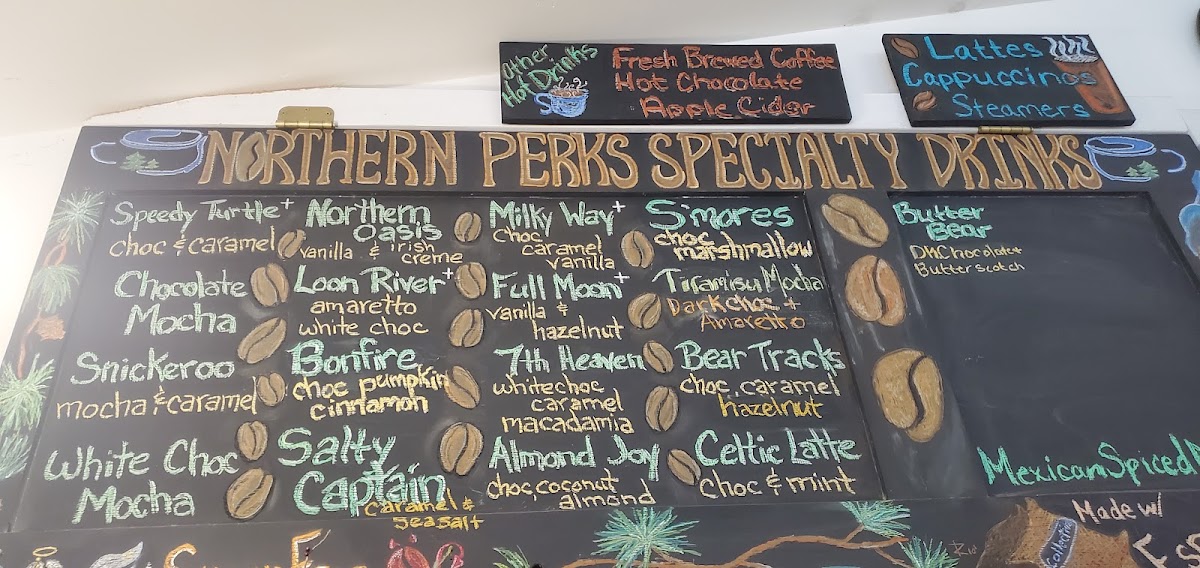 Other
Hot Drinks
Fresh Brewed Coffee
Hot Chocolate
Apple Cider
Lattes
Cappuccinos
Steamers
NORTHERN PERKS SPECIALTY DRINKS
Speedy Turtle+
choc & caramel
Chocolate
Mocha
Snickeroo
mocha & caramel
White Choc
Mocha
Northern
Oasis
vanilla & irish
creme
Loon River+
amaretto
white choc
Bonfire
choc pumpkin
cinnamon
Salty
Captain
caramel &
sea salt
Milky Way+
choc
caramel
vanilla
Full Moon+
vanilla &
hazelnut
7th Heaven
white choc
caramel
macadamia
Almond Joy
choc, coconut
almond
S'mores
choc
marshmallow
Tiramisu Mocha
Dark choc +
Amaretto
Bear Tracks
choc, caramel
hazelnut
Celtic Latte
choc & mint
Butter
Bear
Dk Chocolate+
Butterscotch
Mexican Spiced
Made w/